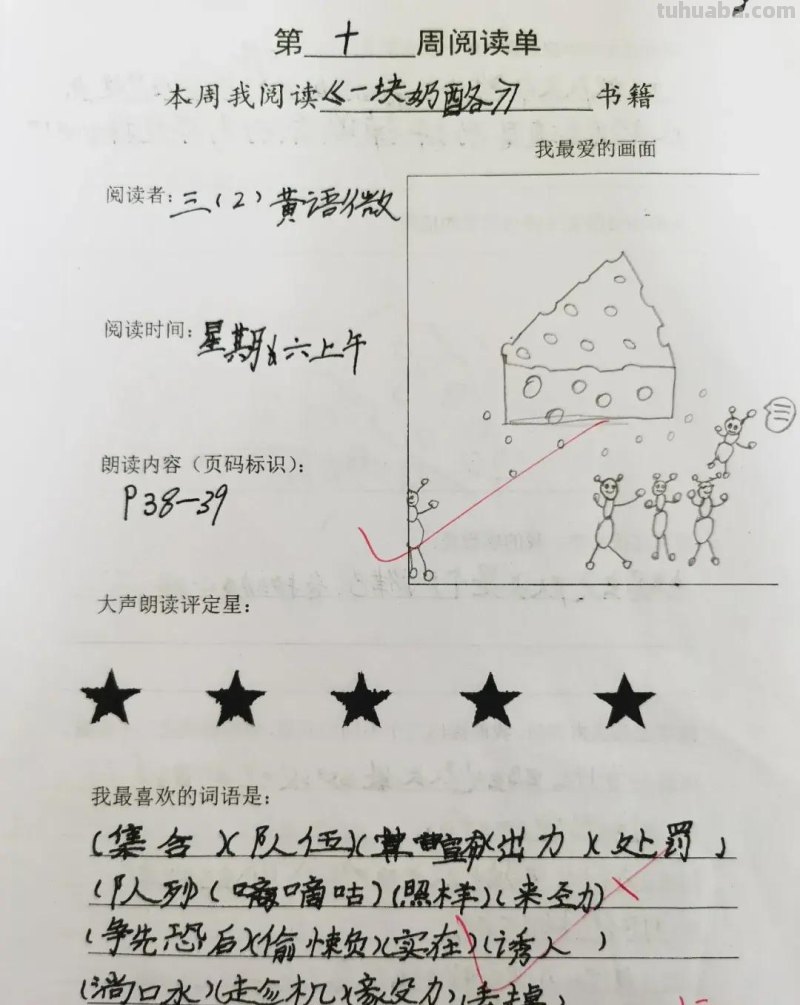 tuhuaba.com
第 十 周阅读单
本周我阅读《一块奶酪》 书籍
我最爱的画面
阅读者：三（2）黄语微
阅读时间：星期六上午
朗读内容（页码标识）：
P38—39
大声朗读评定星：
我最喜欢的词语是：
（集合）（队伍）（宣布）（出力）（处罚）
（队列（嘀嘀咕）（照样）（来至力）
（争先恐后）（偷懒）（实在）（诱人）
（淌口水）